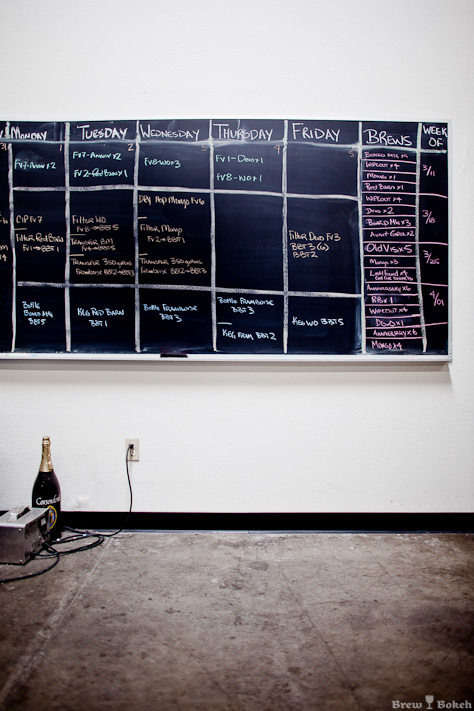 Monday Tuesday Wednesday Thursday Friday Brews Week of
1 2 3 4 5
Fv7-Anniv x2
Fv7-Anniv x2
Fv8-Red Barn x1
Fv8-WO x3
Fv1-Deuo x1
Fv8-WO x1
CIP Fv7
Filter Red Barn
Fv1→BBT1
Filter WO
Fv8→BBT5
Transfer BM
Transfer 350 gallons
Framboise BBT2→BBT3
Dry Hop Mongo Fv6
Filter Mongo
Fv2→BBT1
Transfer 350 gallons
Framboise BBT2→BBT3
Filter Deuo Fv3
BBT3 (6)
BBT2
Bottle
Board Mtn
BBT5
Keg Red Barn
BBT1
Bottle Framboise
BBT3
Bottle Framboise
BBT3
Keg Fram BBT2
Keg WO BBT5
Board Mtn x5
Wipeout x4
Mongo x1
Red Barn x1
3/11
Wipeout x4
Deuo x2
Board Mtn x3
Avant Garde x2
3/18
Old Vis x5
Mongo x3
Lost & Found x4
3/25
Anniversary x6
RB x1
Wipeout x4
4/01
Deuo x1
Anniversary x6
Mongo x4
Brew Bokeh